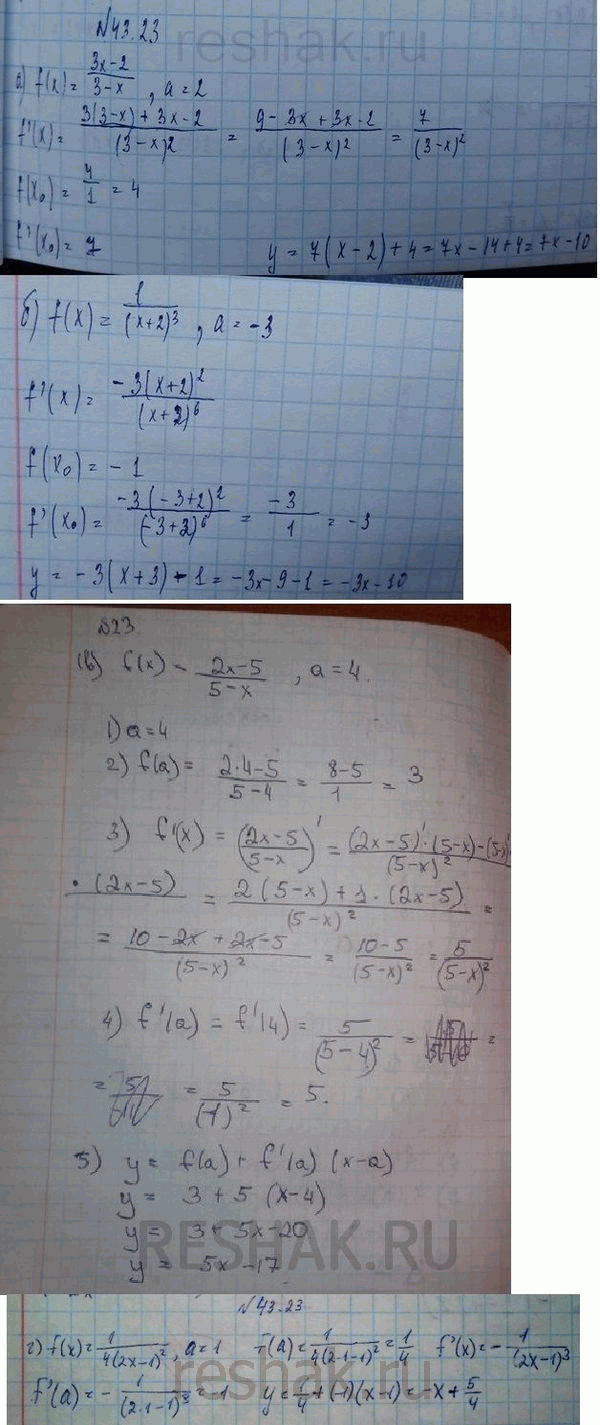 №43.23
reshak.ru
а) f(x) = (3x-2)/(3-x) , a = 2
f'(x) = (3(3-x)+3x-2)/(3-x)2 = (9-3x+3x-2)/(3-x)² = 7/(3-x)²
f(x₀) = 4/1 = 4
f'(x₀) = 7 y = 7(x-2)+4 = 7x-14+4 = 7x-10
б) f(x) = 1/(x+2)³ , a = -3
f'(x) = (-3(x+2)²)/(x+2)⁶
f(x₀) = -1
f'(x₀) = (-3(-3+2)²)/(-3+2)⁶ = -3/1 = -3
y = -3(x+3)-1 = -3x-9-1 = -3x-10
№23
(в) f(x) = (2x-5)/(5-x) , a = 4.
1) a = 4
2) f(a) = (2·4-5)/(5-4) = (8-5)/1 = 3
3) f'(x) = ((2x-5)/(5-x))' = ((2x-5)'·(5-x)-(5-x)'
·(2x-5))/(5-x)² = (2(5-x)+1·(2x-5))/(5-x)² =
= (10-2x+2x-5)/(5-x)² = (10-5)/(5-x)² = 5/(5-x)²
4) f'(a) = f'(4) = 5/(5-4)² = =
= = 5/(1)² = 5.
5) y = f(a)+f'(a)(x-a)
y = 3+5(x-4)
y = 3+5x-20
RESHAK.RU
y = 5x-17
№43.23
г) f(x) = 1/(4(2x-1)²), a=1 f(a) = 1/(4(2·1-1)²) = 1/4 f'(x) = -1/(2x-1)³
f'(a) = -1/(2·1-1)³ = -1 y = 1/4+(-1)(x-1) = -x+5/4
reshak.ru